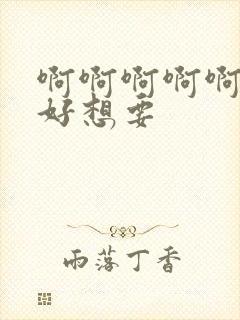 啊啊啊啊啊
好想要
雨落丁香